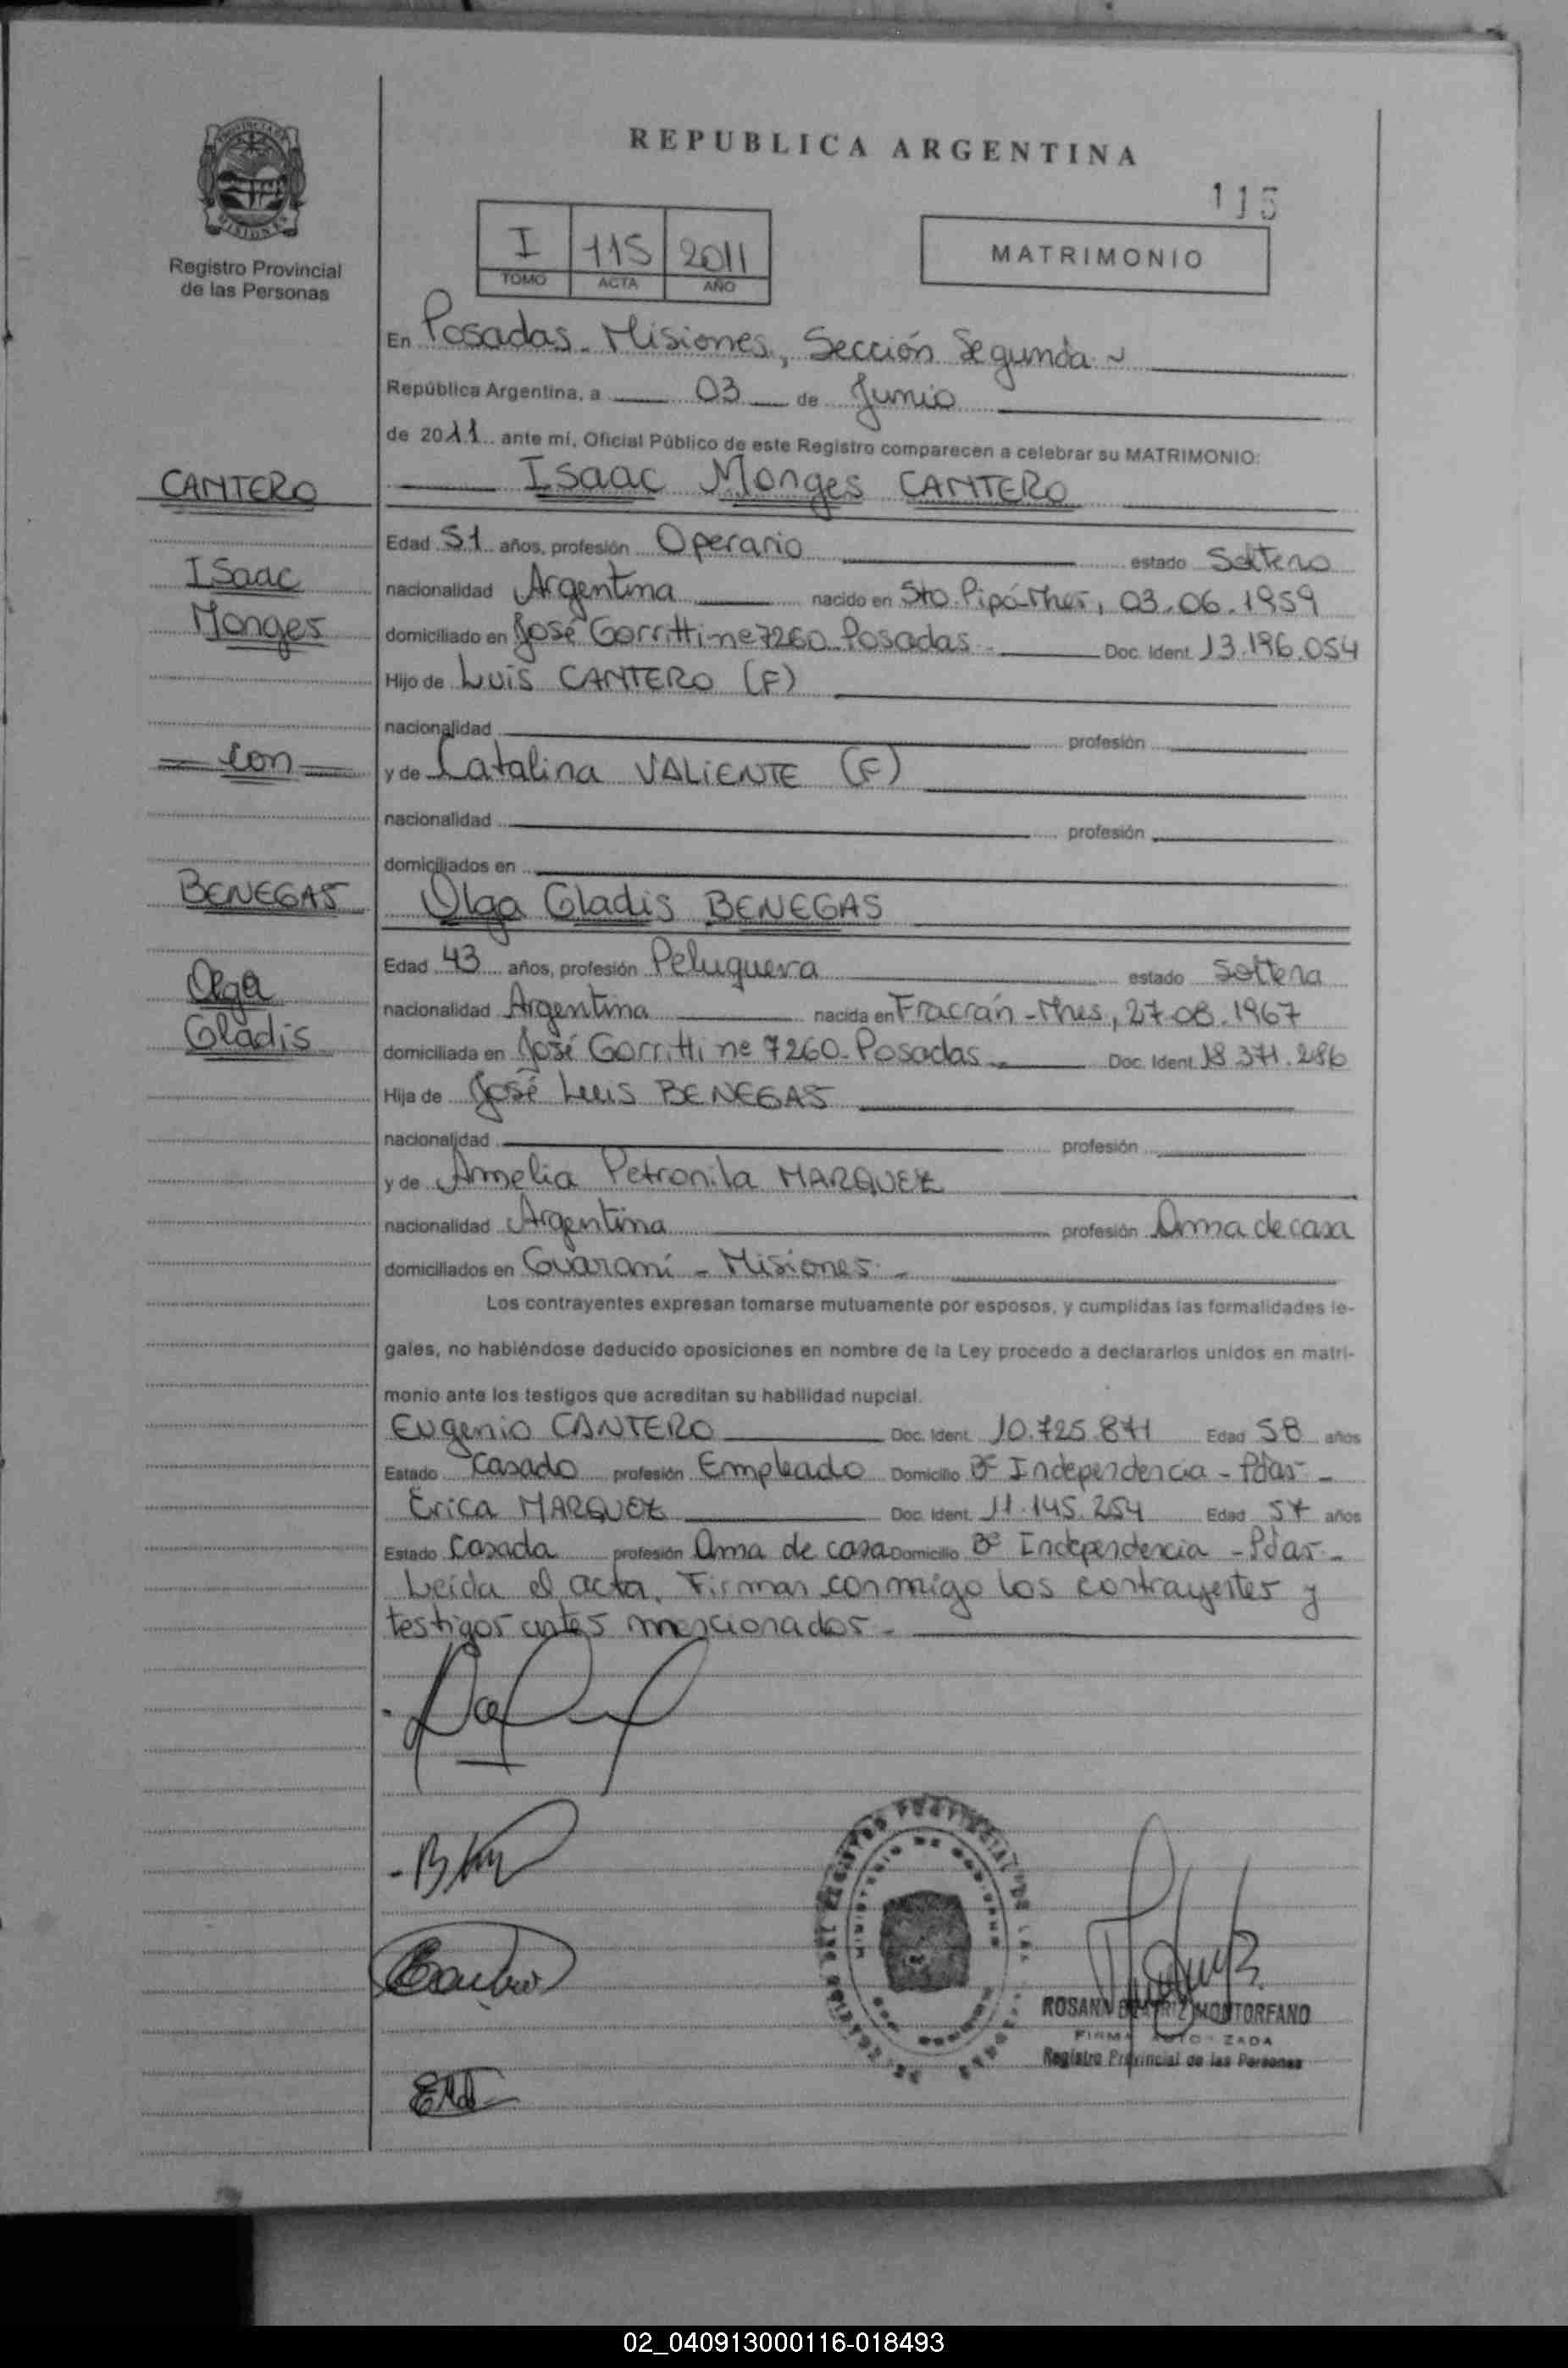 REPUBLICA ARGENTINA
115
PROVINCIA DE
MISIONES
Registro Provincial
de las Personas
I 115 2011
TOMO ACTA AÑO
MATRIMONIO
En Posadas - Misiones, Sección Segunda
República Argentina, a 03 de Junio
de 2011 ante mí, Oficial Público de este Registro comparecen a celebrar su MATRIMONIO:
CANTERO
Isaac Monges CANTERO
Edad 51 años, profesión Operario estado Soltero
Isaac
nacionalidad Argentina nacido en Sto. Pipó-Mnes, 03.06.1959
Monges
domiciliado en José Gorritti nº 7260 Posadas - Doc. Ident. 13.196.054
Hijo de Luis CANTERO (F)
nacionalidad profesión
= con =
y de Catalina VALIENTE (F)
nacionalidad profesión
domiciliados en
BENEGAS
Olga Gladis BENEGAS
Edad 43 años, profesión Peluquera estado Soltera
Olga
nacionalidad Argentina nacida en Fracrán - Mnes, 27.08.1967
Gladis
domiciliada en José Gorritti nº 7260 - Posadas - Doc. Ident. 18.371.286
Hija de José Luis BENEGAS
nacionalidad profesión
y de Amelia Petronila MARQUEZ
nacionalidad Argentina profesión Ama de casa
domiciliados en Guaraní - Misiones -
Los contrayentes expresan tomarse mutuamente por esposos, y cumplidas las formalidades le-
gales, no habiéndose deducido oposiciones en nombre de la Ley procedo a declararlos unidos en matri-
monio ante los testigos que acreditan su habilidad nupcial.
Eugenio CANTERO Doc. Ident. 10.725.871 Edad 58 años
Estado Casado profesión Empleado Domicilio Bº Independencia - Pdas -
Erica MARQUEZ Doc. Ident. 11.145.254 Edad 57 años
Estado Casada profesión Ama de casa Domicilio Bº Independencia - Pdas -
Leída el acta, Firman conmigo los contrayentes y
testigos antes mencionados -
ROSANA BEATRIZ MONTORFANO
FIRMA AUTORIZADA
Registro Provincial de las Personas
02_040913000116-018493